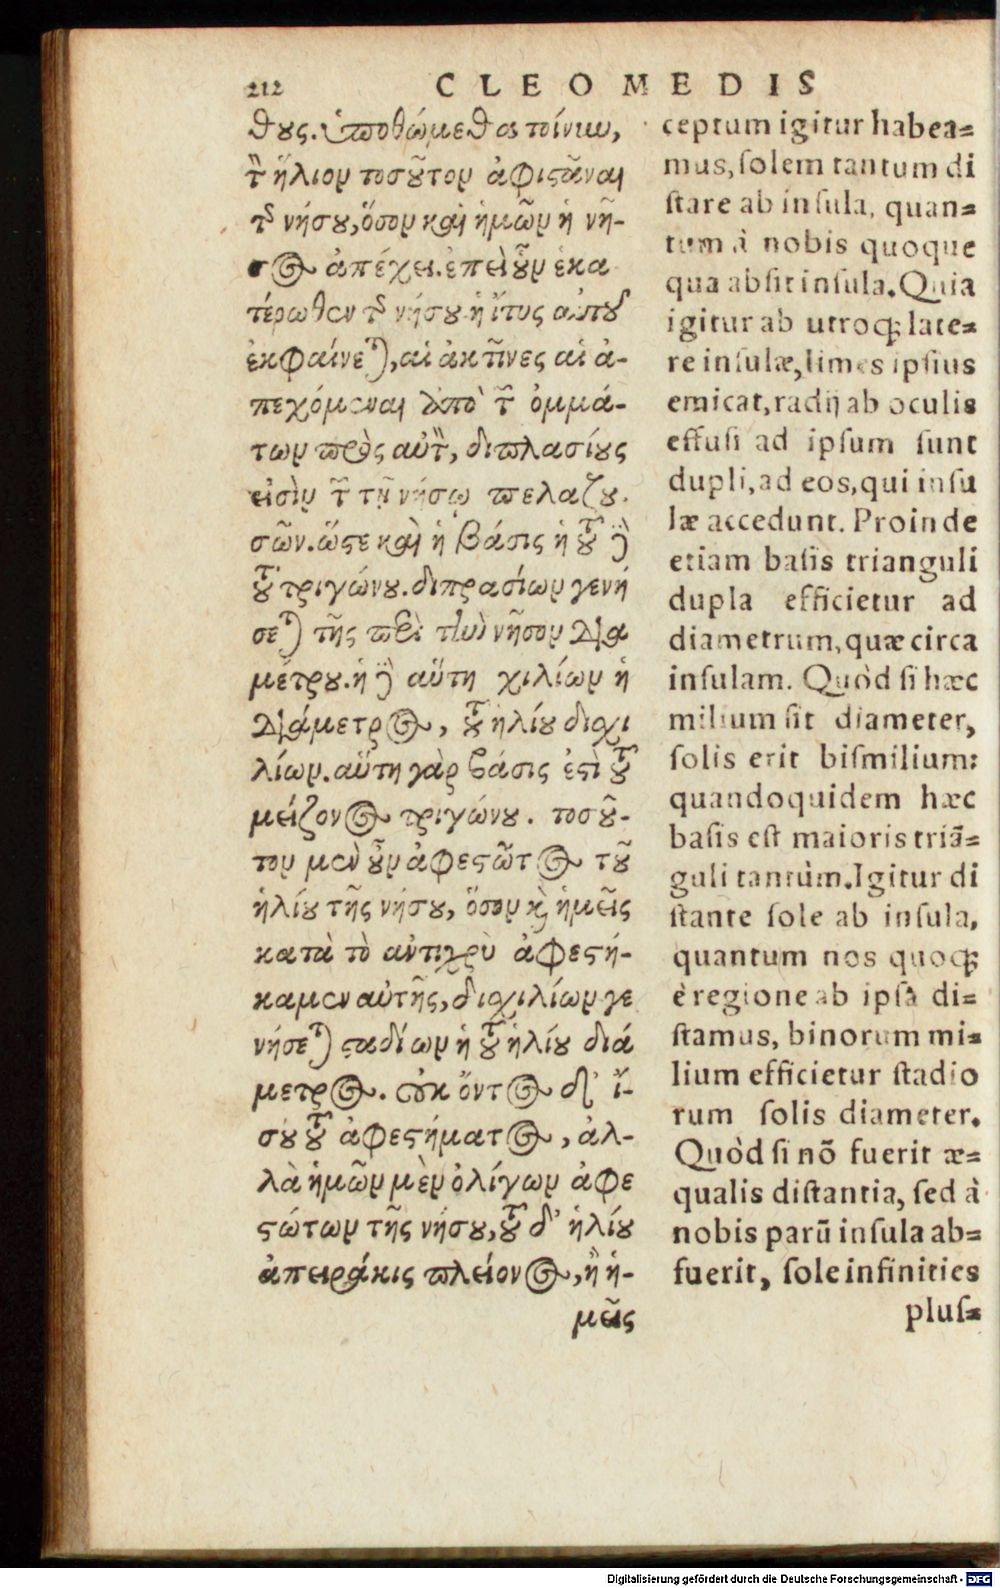 212 CLEOMEDIS
θους. ὑποθώμεθα τοίνυν,
τὸν ἥλιον τοσοῦτον ἀφιστάναι
τῆς νήσου, ὅσον καὶ ἡμῶν ἡ νῆ-
σος ἀπέχει. ἐπεὶ οὖν ἑκα
τέρωθεν τῆς νήσου ἡ ἴτυς αὐτοῦ
ἐκφαίνεται, αἱ ἀκτῖνες αἱ ἀ-
πεχόμεναι ἀπὸ τῶν ὀμμά-
των πρὸς αὐτὸν, διπλασίους
εἰσὶν τῶν τῇ νήσῳ πελαζου-
σῶν. ὥστε καὶ ἡ βάσις ἡ τοῦ
τοῦ τριγώνου. διπρασίων γενή
σεται τῆς περὶ τὴν νῆσον δια
μέτρου. ἡ δὲ αὕτη χιλίων ἡ
διάμετρος, τοῦ ἡλίου διχι
λίων. αὕτη γὰρ βάσις ἐστὶ τοῦ
μείζονος τριγώνου. τοσού-
του μὲν οὖν ἀφεστῶτος τοῦ
ἡλίου τῆς νήσου, ὅσον καὶ ἡμεῖς
κατὰ τὸ ἀντικρὺ ἀφεστή-
καμεν αὐτῆς, διχιλίων γε
νήσεται σταδίων ἡ τοῦ ἡλίου διά
μετρος. οὐκ ὄντος δ' ἴ-
σου τοῦ ἀφεστήματος, ἀλ-
λὰ ἡμῶν μὲν ὀλίγων ἀφε
στώτων τῆς νήσου, τοῦ δ' ἡλίου
ἀπειράκις πλείονος, ἢ ἡ-
μεῖς
ceptum igitur habea=
mus, solem tantum di
stare ab insula, quan=
tum à nobis quoque
qua absit insula. Quia
igitur ab utroq; late=
re insulæ, limes ipsius
emicat, radij ab oculis
effusi ad ipsum sunt
dupli, ad eos, qui insu
læ accedunt. Proinde
etiam basis trianguli
dupla efficietur ad
diametrum, quæ circa
insulam. Quòd si hæc
milium sit diameter,
solis erit bismilium:
quandoquidem hæc
basis est maioris triã=
guli tantùm. Igitur di
stante sole ab insula,
quantum nos quoq;
è regione ab ipsa di=
stamus, binorum mi=
lium efficietur stadio
rum solis diameter.
Quòd si nõ fuerit æ=
qualis distantia, sed à
nobis parũ insula ab=
fuerit, sole infinities
plus=
Digitalisierung gefördert durch die Deutsche Forschungsgemeinschaft - DFG